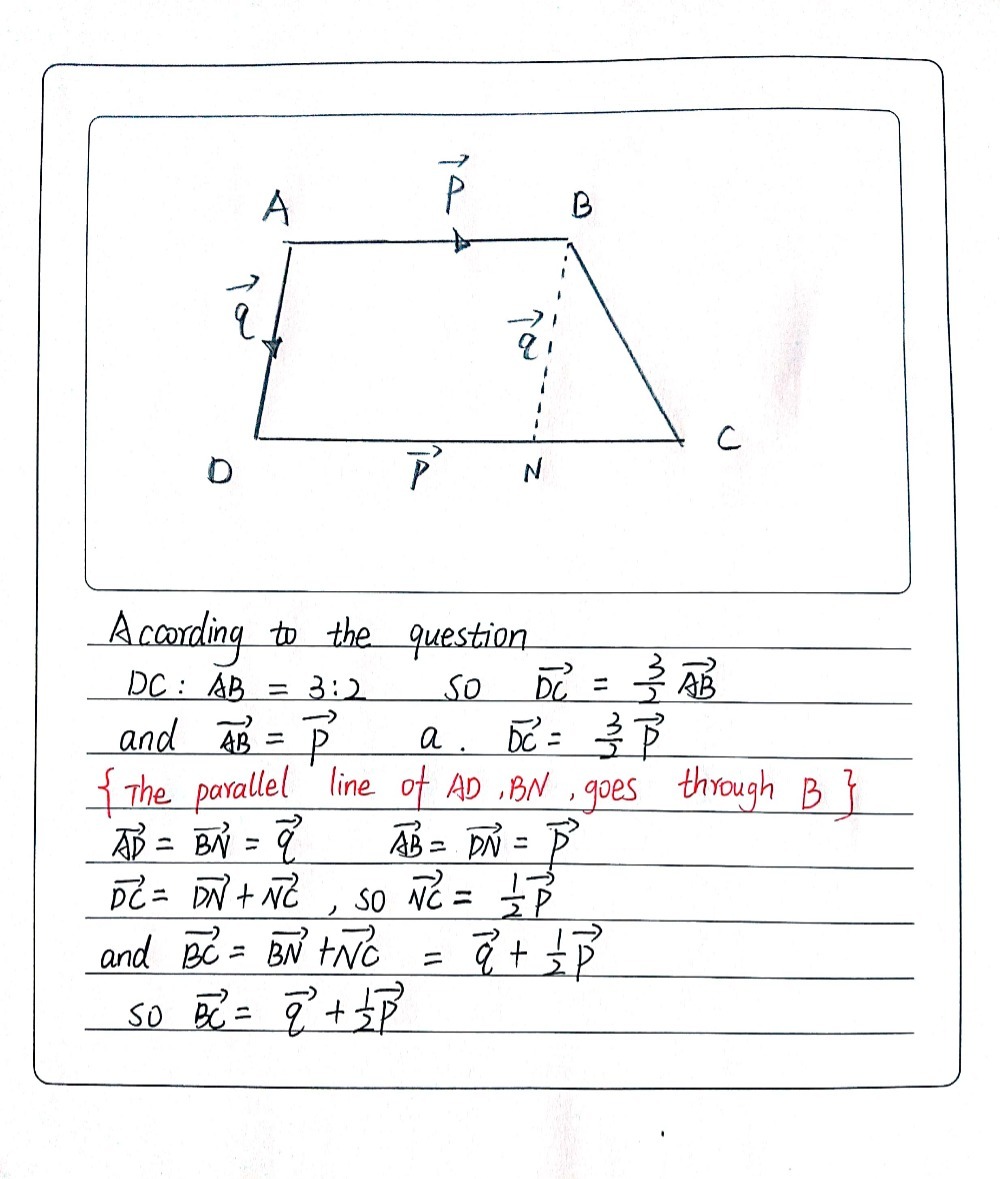 p⃗
A B
q⃗ q⃗
D p⃗ N C
According to the question
DC : AB = 3:2 so D⃗C⃗ = 3/2 A⃗B⃗
and A⃗B⃗ = p⃗ a. D⃗C⃗ = 3/2 p⃗
{ The parallel line of AD, BN, goes through B }
A⃗D⃗ = B⃗N⃗ = q⃗ A⃗B⃗ = D⃗N⃗ = p⃗
D⃗C⃗ = D⃗N⃗ + N⃗C⃗ , so N⃗C⃗ = 1/2 p⃗
and B⃗C⃗ = B⃗N⃗ + N⃗C⃗ = q⃗ + 1/2 p⃗
so B⃗C⃗ = q⃗ + 1/2 p⃗